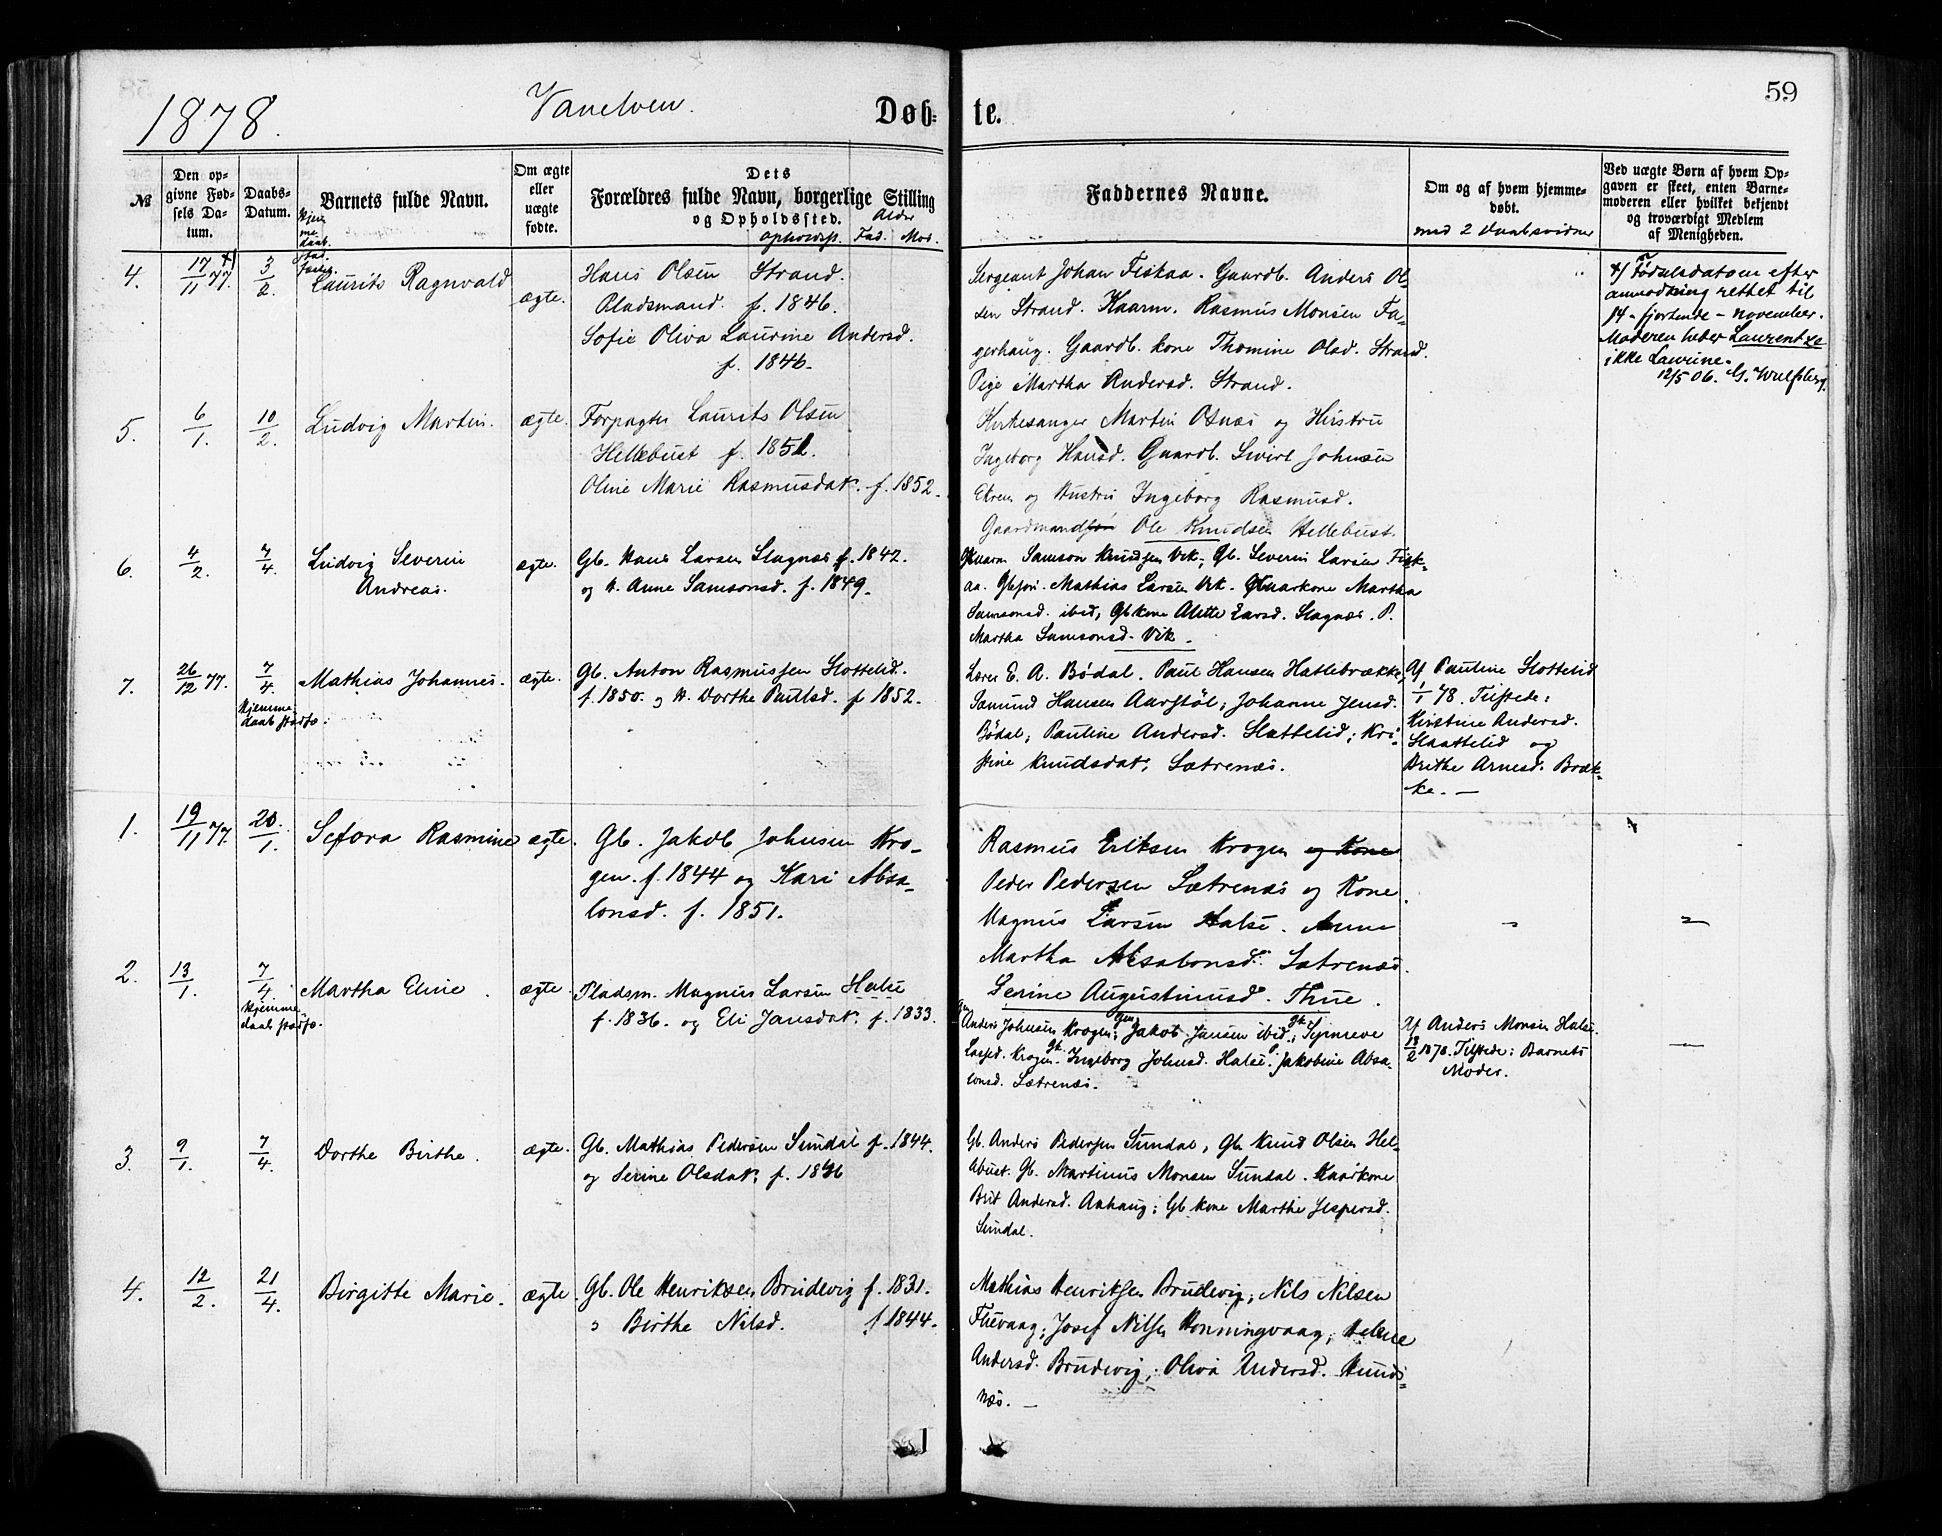 59
1878. Vanelven. Døbte.
№
Den opgivne Fødsels Datum.
Daabs-Datum.
Hjemmedaab stadf.
Barnets fulde Navn.
Om ægte eller uægte fødte.
Dets Forældres fulde Navn, borgerlige Stilling og Opholdssted.
Opholdsst. Alder Fad. Mod.
Faddernes Navne.
Om og af hvem hjemmedøbt.
med 2 Daabsvidner
Ved uægte Børn af hvem Opgaven er skeet, enten Barnemoderen eller hvilket bekjendt og troværdigt Medlem af Menigheden.
4. 17/11 77. x) 3/2. Laurits Ragnvald ægte.
Hans Olsen Strand.
Pladsmand. f. 1846.
Sofie Oliva Laurine Andersd.
f. 1846.
Sergeant Johan Fiskaa. Gaardb. Anders Ol-
sen Strand. Kaarm. Rasmus Monsen Fa-
gerhaug. Gaardb. kone Thomine Olsd. Strand.
Pige Martha Andersd. Strand.
x) Fødselsdatoen efter
anmodning rettet til
14 - fjortende - november.
Moderen heter Laurentze
ikke Laurine.
12/5 06. G. Wulfsberg.
5. 6/1. 10/2. Ludvig Martin. ægte.
Forpagter Laurits Olsen
Hellebust f. 1851.
Oline Marie Rasmusdat. f. 1852.
Kirkesanger Martin Osnæs og Hustru
Ingeborg Hansd. Gaardb. Sivert Johnsen
og Hustru Ingeborg Rasmusd.
Gaardmand Ole Knudsen Hellebust.
6. 4/2. 7/4. Ludvig Severin
Andreas. ægte.
Gb. Hans Larsen Slagnæs f. 1842.
og H. Anne Samsonsd. f. 1849.
Samson Knudsen Vik; Gb. Severin Larsen Fisk-
aa. Mathias Larsen Vik. Martha
Samsonsd. ibid; Gbkone Alette Larsd. Slagnæs. P.
Martha Samsonsd. Vik.
7. 26/12 77. 7/4. Mathias Johannes. ægte.
Hjemme-
daab stadf.
Gb. Anton Rasmussen Slottelid.
f. 1850. og H. Dorthe Paulsd. f 1852.
Lærer E. A. Bødal. Paul Hansen Hatlebrække,
Samund Hansen Aarstøl; Johanne Jensd.
Bødal; Pauline Andersd. Slattelid; Kri-
stine Knudsdat; Sætrenæs.
Af Pauline Slottelid
1/1 78. Tilstede:
Kirstine Andersd.
Slaattelid og
Brithe Arnesd. Bræk-
ke.
1. 19/11 77. 20/1. Sefora Rasmine ægte.
Gb. Jakob Johnsen Kro-
gen. f. 1844 og Kari Absa-
lonsd. f. 1851.
Rasmus Eriksen Krogen og Kone
Peder Pedersen Sætrenæs og Kone.
Magnus Larsen Halse. Anne
Martha Absalonsd. Sætrenæs.
Serine Augustinusd. Thue.
2. 13/1. 7/4. Martha Eline. ægte.
Hjemme-
daab stadf.
Pladsm. Magnus Larsen Halse
f. 1836. og Eli Jansdat. f. 1833.
Anders Johnsen Krogen; Jakob Jansen ibid; Synneve
Lassed. Krogen. Ingeborg Johnsd. Halse. Jakobine Absa-
lonsd. Sætrenæs.
Af Anders Monsen Halse.
13/2 1878. Tilstede: Barnets
Moder.
3. 9/1. 7/4. Dorthe Birthe. ægte.
Gb. Mathias Pedersen Sundal f. 1844.
og Serine Olsdat. f. 1846
Gb. Anders Pedersen Sundal, Gb. Knud Olsen Hel-
abust. Gb. Martinus Monsen Sundal. Kaarkone
Brit Andersd. Aahaug; Gb kone Marthe Jespersd.
Sundal.
4. 12/2. 21/4. Birgitte Marie. ægte.
Gb. Ole Henriksen Brudevig f. 1831.
" Birthe Nilsd. f 1844.
Mathias Henriksen Brudevig, Nils Nilsen
Thuevaag; Josef Nilsen Honningvaag; Helene
Andersd. Brudevig; Oliva Andersd. Hunds-
næs.